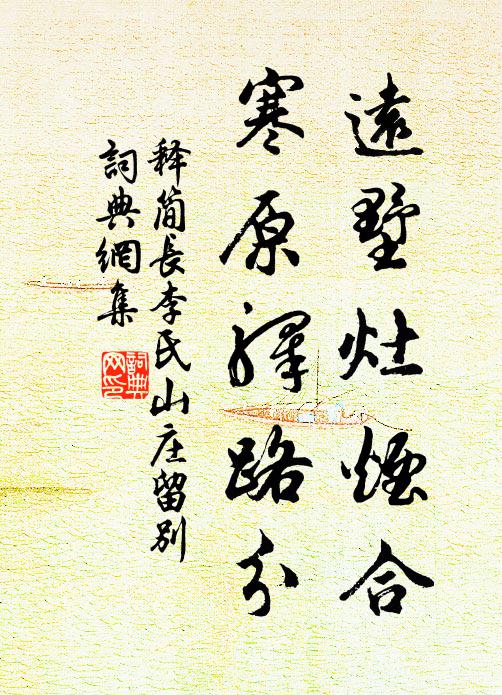 遠墅灶煙合
寒原驛路分
释簡長李氏山庄留别
詞典網集
詞典网印